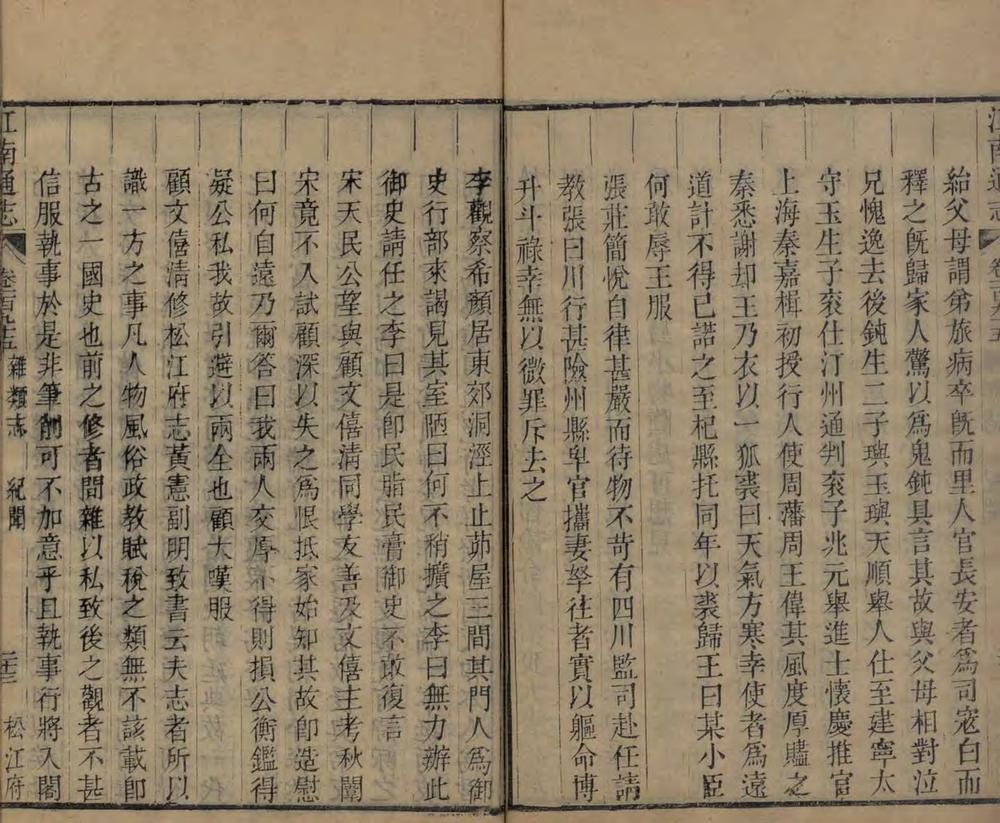 紿父母謂弟旅病卒旣而里人官長安者爲司寇白而
釋之旣歸家人驚以爲鬼鈍具言其故與父母相對泣
兄愧逸去後鈍生二子璵玉璵天順舉人仕至建寧太
守玉生子袞仕汀州通判袞子兆元舉進士懷慶推官
上海秦嘉楫初授行人使周藩周王偉其風度厚贐之
秦悉謝却王乃衣以一狐裘曰天氣方寒幸使者爲遠
道計不得已諾之至杞縣托同年以裘歸王曰某小臣
何敢辱王服
張莊簡悅自律甚嚴而待物不苛有四川監司赴任請
教張曰川行甚險州縣卑官攜妻孥往者實以軀命博
升斗祿幸無以微罪斥去之
李觀察希顏居東郊洞涇止止茆屋三間其門人爲御
史行部來謁見其室陋曰何不稍擴之李曰無力辦此
御史請任之李曰是卽民脂民膏御史不敢復言
宋天民公望與顧文僖淸同學友善及文僖主考秋闈
宋竟不入試顧深以失之爲恨抵家始知其故卽造慰
曰何自遠乃爾答曰我兩人交厚不得則損公衡鑑得
疑公私我故引避以兩全也顧大嘆服
顧文僖淸修松江府志黃憲副明致書云夫志者所以
識一方之事凡人物風俗政教賦稅之類無不該載卽
古之一國史也前之修者間雜以私致後之觀者不甚
信服執事於是非筆削可不加意乎且執事行將入閣
江南通志 雜類志 紀聞 松江府